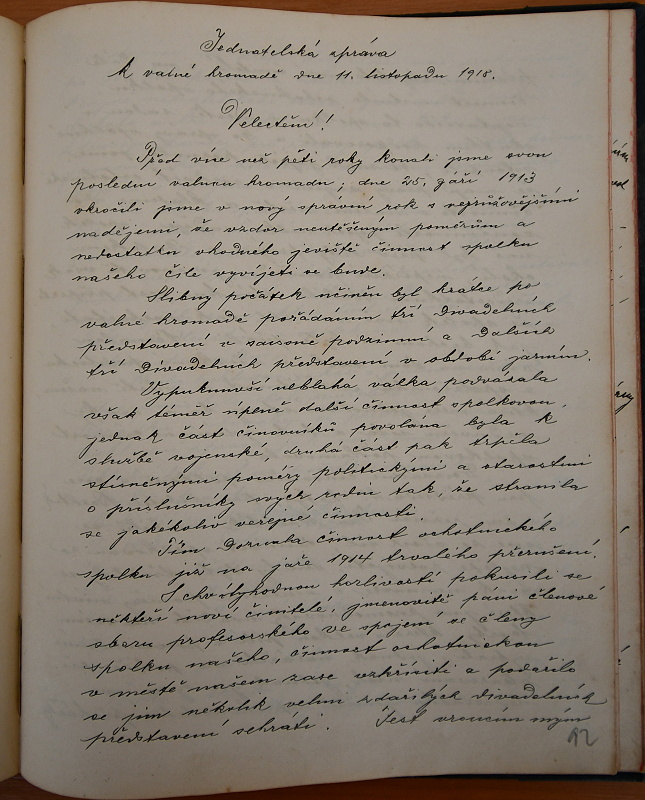 Jednatelská zpráva
k valné hromadě dne 11. listopadu 1918.
Velectění!
Před více než pěti roky konali jsme svou
poslední valnou hromadu; dne 25. září 1913
vkročili jsme v nový správní rok s nejrůžovějšími
nadějemi, že vzdor neutěšeným poměrům a
nedostatku vhodného jeviště činnost spolku
našeho čile vyvíjeti se bude.
Slibný počátek učiněn byl krátce po
valné hromadě pořádáním tří divadelních
představení v saisoně podzimní a dalších
tří divadelních představení v období jarním.
Vypuknuvší neblahá válka podvázala
však téměř úplně další činnost spolkovou,
jednak část činovníků povolána byla k
službě vojenské, druhá část pak trpěla
stísněnými poměry politickými a starostmi
o příslušníky svých rodin tak, že stranila
se jakékoliv veřejné činnosti.
Tím doznala činnost ochotnického
spolku již na jaře 1914 trvalého přerušení.
S chvályhodnou horlivostí pokusili se
někteří noví činitelé, jmenovitě páni členové
sboru profesorského ve spojení se členy
spolku našeho, činnost ochotnickou
v městě našem zase vzkřísiti a podařilo
se jim několik velmi zdařilých divadelních
představení sehráti. Jest vroucím mým
92